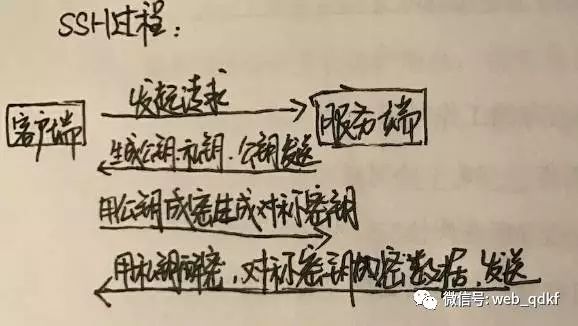 SSH过程：
发起请求
客户端
服务端
生成公钥、私钥，公钥发送
用公钥加密生成对称密钥
用私钥解密，对称密钥加密数据，发送
微信号: web_qdkf